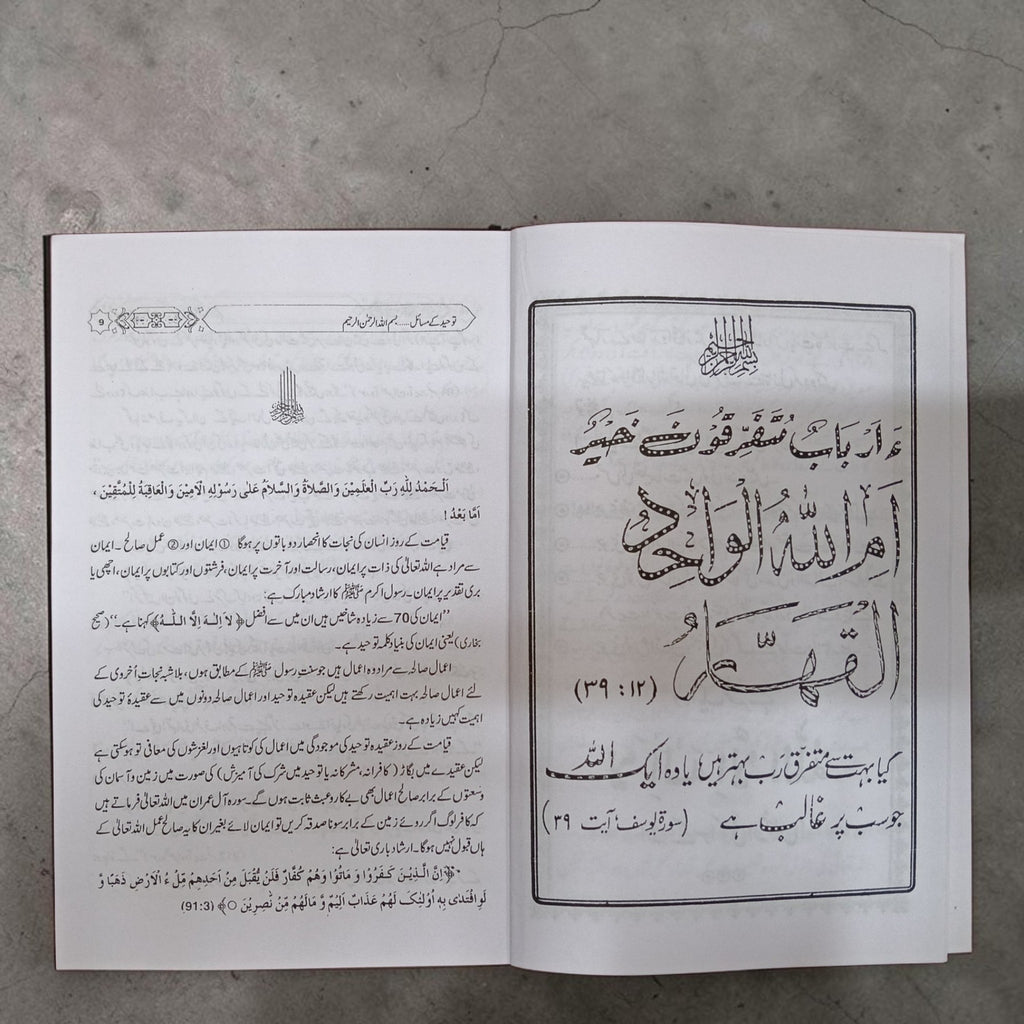 بسم الله الرحمن الرحيم
ءَاَرْبَابٌ مُّتَفَرِّقُوْنَ خَيْرٌ
اَمِ اللّٰهُ الْوَاحِدُ
الْقَهَّارُ
(۳۹:۱۲)
کیا بہت سے متفرق رَبّ بہتر ہیں یا وہ ایک اللہ
جو سب پر غالب ہے (سورۃ یوسف' آیت ۳۹)
توحید کے مسائل.....بسم اللہ الرحمٰن الرحیم
9
بسم الله الرحمن الرحيم
اَلْحَمْدُ لِلّٰهِ رَبِّ الْعٰلَمِيْنَ وَالصَّلاَةُ وَالسَّلاَمُ عَلٰى رَسُوْلِهِ الْاَمِيْنَ وَالْعَاقِبَةُ لِلْمُتَّقِيْنَ ،
اَمَّا بَعْدُ !
قیامت کے روز انسان کی نجات کا انحصار دو باتوں پر ہوگا ① ایمان اور ② عمل صالح ۔ ایمان
سے مراد ہے اللہ تعالیٰ کی ذات پر ایمان، رسالت اور آخرت پر ایمان، فرشتوں اور کتابوں پر ایمان، اچھی یا
بری تقدیر پر ایمان۔ رسول اکرم ﷺ کا ارشاد مبارک ہے:
''ایمان کی 70 سے زیادہ شاخیں ہیں ان میں سے افضل ﴿ لاَ اِلٰـهَ اِلاَّ الـلّٰـهُ ﴾ کہنا ہے۔''(صحیح
بخاری) یعنی ایمان کی بنیاد کلمہ توحید ہے۔
اعمال صالحہ سے مراد وہ اعمال ہیں جو سنت رسول ﷺ کے مطابق ہوں، بلاشبہ نجات اُخروی کے
لئے اعمال صالحہ بہت اہمیت رکھتے ہیں لیکن عقیدہ توحید اور اعمال صالحہ دونوں میں سے عقیدۂ توحید کی
اہمیت کہیں زیادہ ہے۔
قیامت کے روز عقیدہ توحید کی موجودگی میں اعمال کی کوتاہیوں اور لغزشوں کی معافی تو ہوسکتی ہے
لیکن عقیدے میں بگاڑ ( کافرانہ، مشرکانہ یا توحید میں شرک کی آمیزش ) کی صورت میں زمین و آسمان کی
وسعتوں کے برابر صالح اعمال بھی بے کار و عبث ثابت ہوں گے۔ سورہ آل عمران میں اللہ تعالیٰ فرماتے ہیں
کہ کافر لوگ اگر روئے زمین کے برابر سونا صدقہ کریں تو ایمان لائے بغیر ان کا یہ صالح عمل اللہ تعالیٰ کے
ہاں قبول نہیں ہوگا۔ ارشاد باری تعالیٰ ہے:
﴿ اِنَّ الَّـذِيْـنَ كَـفَـرُوْا وَ مَاتُوْا وَهُمْ كُفَّارٌ فَلَنْ يُّقْبَلَ مِنْ اَحَدِهِمْ مِّلْ ءُ الْاَرْضِ ذَهَبًا وَّ
لَوِ افْتَدٰى بِهٖ اُوْلٰئِكَ لَهُمْ عَذَابٌ اَلِيْمٌ وَّ مَالَهُمْ مِّنْ نّٰصِرِيْنَ ○ ﴾ (91:3)